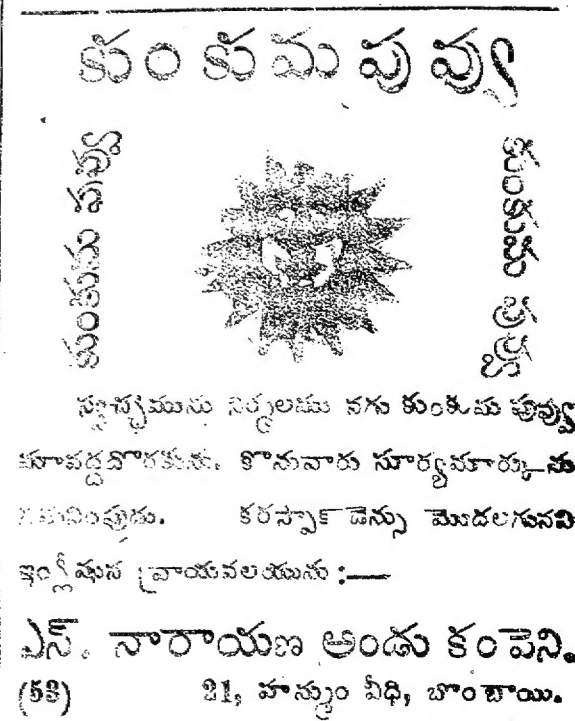 కుంకుమపువ్వు
కుంకుమ పువ్వు
కుంకుమ పువ్వు
స్వచ్ఛమును నిర్మలము నగు కుంకుమ పువ్వు
మావద్దదొరకును. కొనువారు సూర్యమార్కును
గమనింపుడు. కరస్పాండెన్సు మొదలగునవి
ఇంగ్లీషున వ్రాయవలయును :—
ఎస్. నారాయణ అండు కంపెని.
(53) 21, హన్మాం వీధి, బొంబాయి.